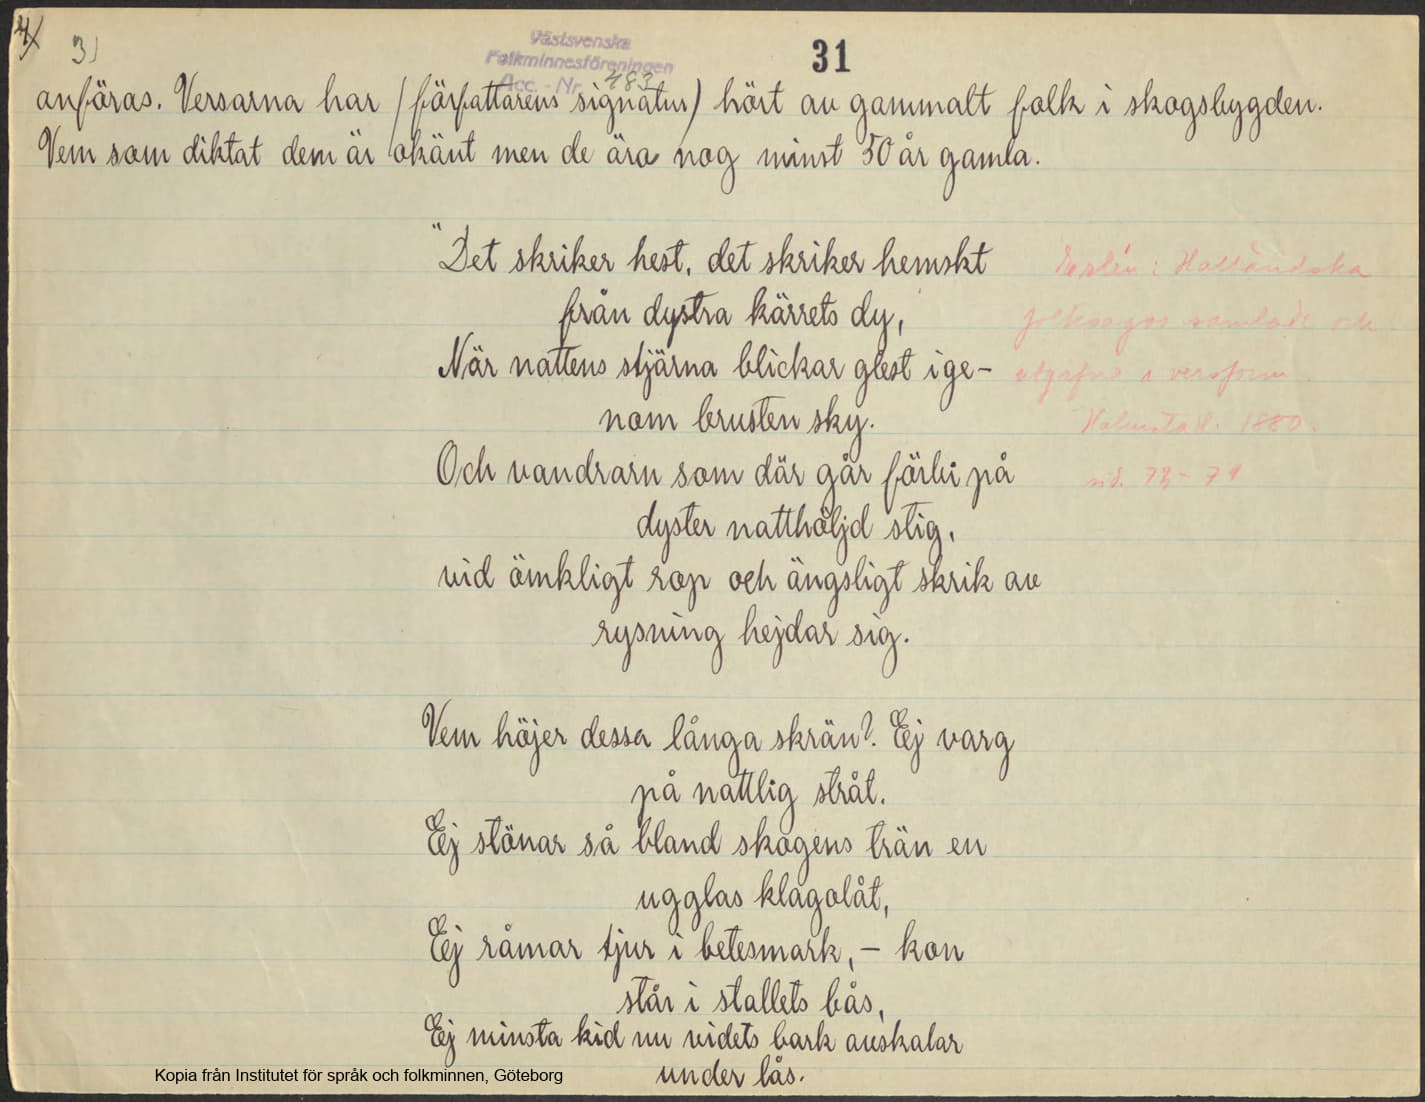 4)
3)
Västsvenska
Folkminnesföreningen
Acc. - Nr. 483
31
anföras. Versarna har (författarens signatur) hört av gammalt folk i skogsbygden.
Vem som diktat dem är okänt men de äro nog minst 50 år gamla.
"Det skriker hest, det skriker hemskt
från dystra kärrets dy,
När nattens stjärna blickar glest ige-
nom brusten sky.
Och vandrarn som där går förbi på
dyster natthöljd stig,
vid ömkligt rop och ängsligt skrik av
rysning hejdar sig.
: Halländska
folksagor samlade och
utgifna i versform.
Halmstad. 1880.
sid.
Vem höjer dessa långa skrän? Ej varg
på nattlig stråt.
Ej stönar så bland skogens trän en
ugglas klagolåt,
Ej råmar tjur i betesmark, – kon
står i stallets bås,
Ej minsta kid nu videts bark avskalar
under lås.
Kopia från Institutet för språk och folkminnen, Göteborg